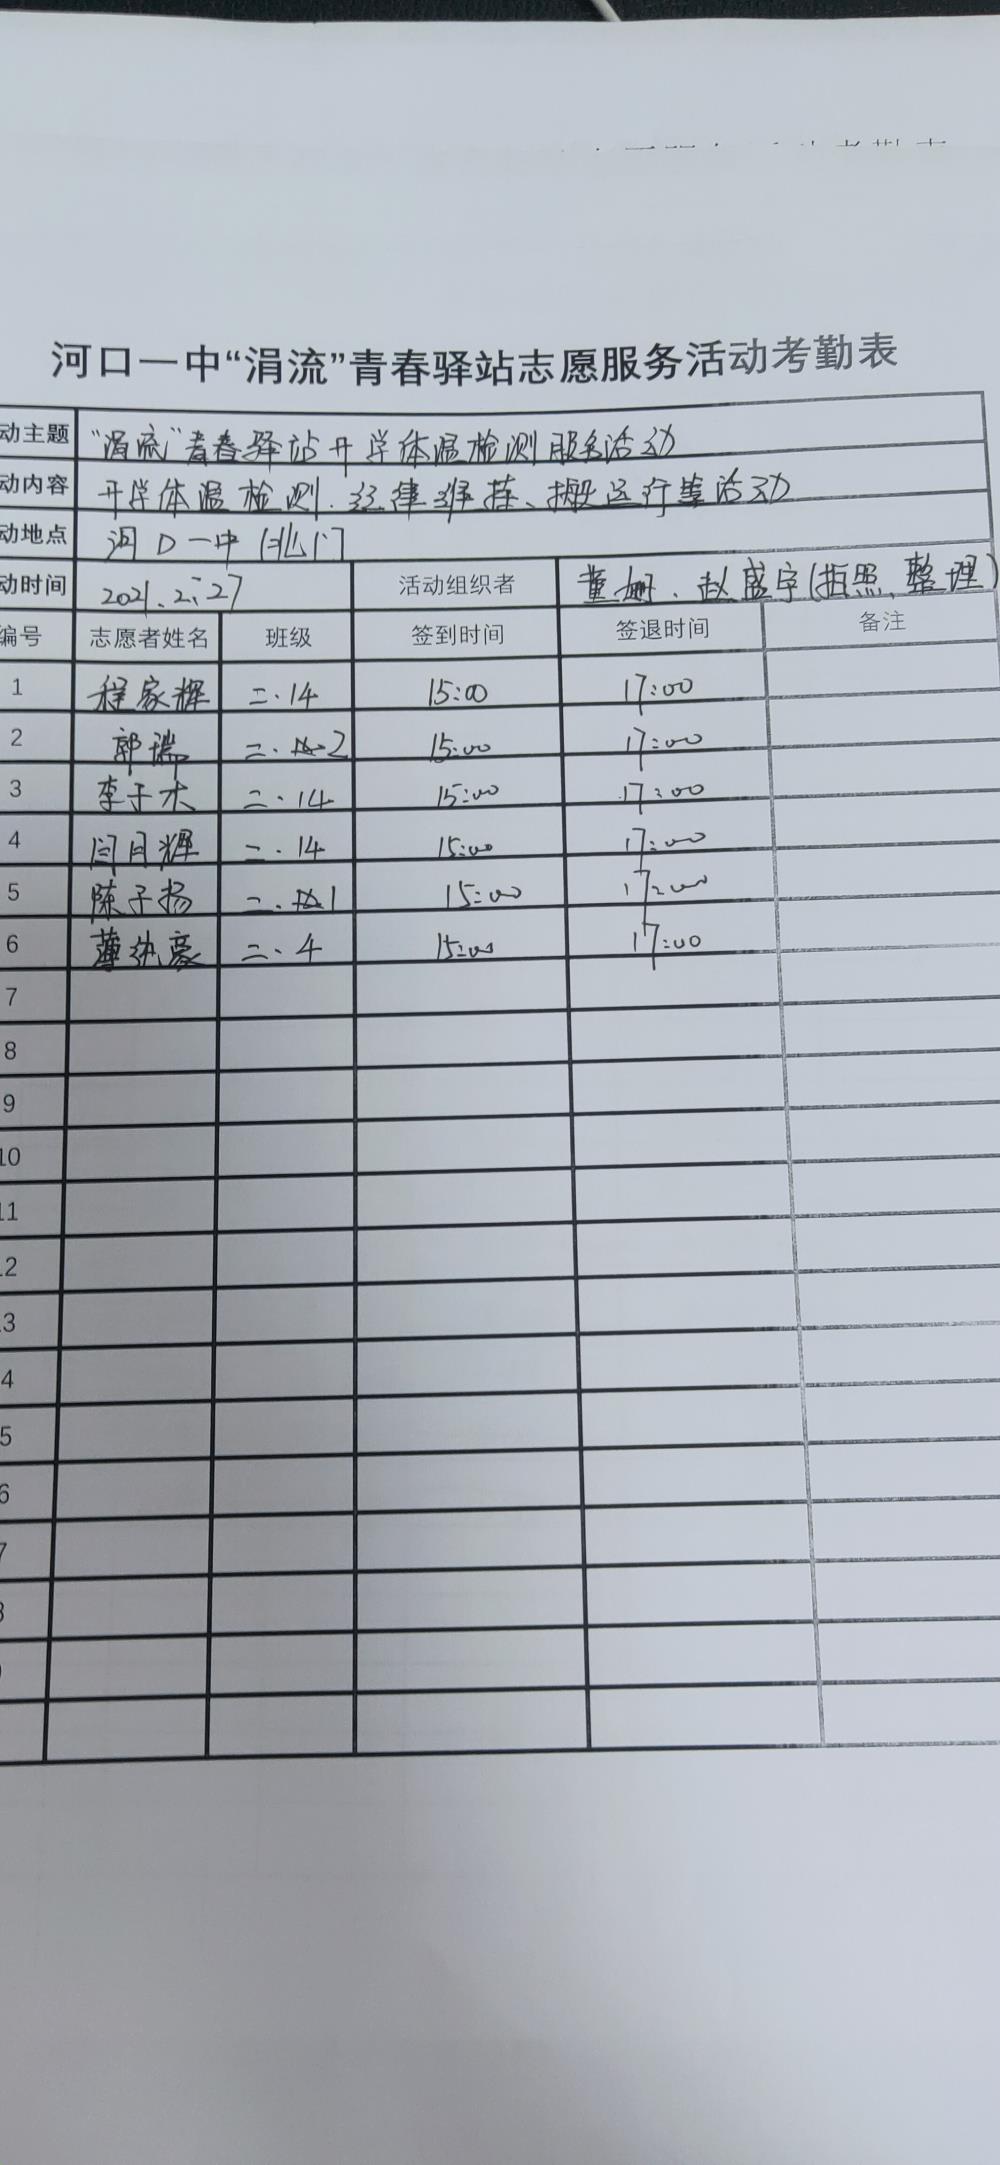 河口一中“涓流”青春驿站志愿服务活动考勤表
动主题 “涓流”青春驿站开学体温检测服务活动
动内容 开学体温检测、纪律维持、搬运行李活动
动地点 河口一中北门
动时间 2021.2.27 活动组织者 董姗、赵盛宇(拍照、整理)
编号 志愿者姓名 班级 签到时间 签退时间 备注
1 程家辉 二.14 15:00 17:00
2 郭瑞 二.2 15:00 17:00
3 李于木 二.14 15:00 17:00
4 闫月辉 二.14 15:00 17:00
5 陈子扬 二.1 15:00 17:00
6 薄纨豪 二.4 15:00 17:00
7
8
9
10
11
12
13
4
5
6
7
8